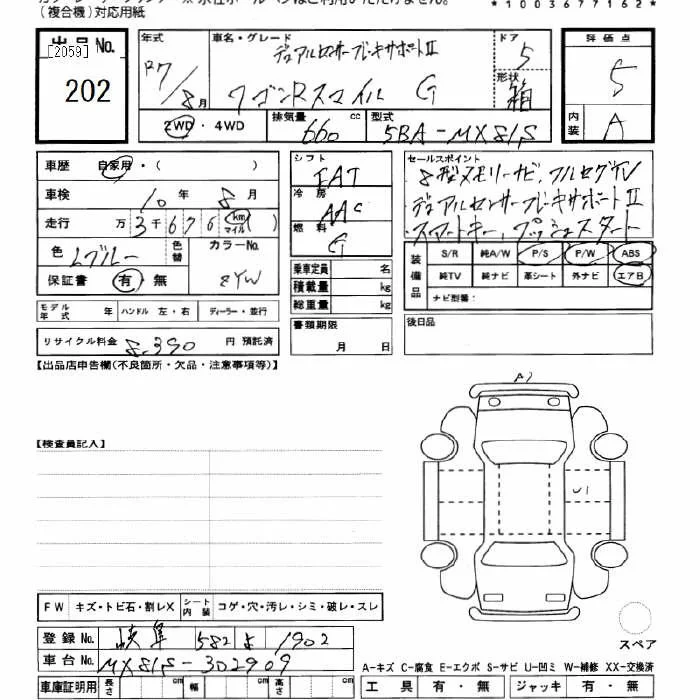 (複合機)対応用紙
*1003677162*
出品No.
[2059]
202
年式
R7/8月
車名・グレード
デュアルセンサーブレーキサポートⅡ
ワゴンRスマイル G
ドア
5
形状
箱
評価点
5
内装
A
2WD・4WD
排気量
660 cc
型式
5BA-MX81S
車歴 自家用・( )
車検 10年 8月
走行 万3千676 km マイル
色 Lブルー
色替
カラーNo. ZYW
保証書 有・無
モデル年式 年
ハンドル 左・右
ディーラー・並行
リサイクル料金 8,390 円 預託済
シフト FAT
冷房 AAC
燃料 G
乗車定員 名
積載量 kg
総重量 kg
書類期限
月 日
セールスポイント
8型メモリーナビ、フルセグTV
デュアルセンサーブレーキサポートⅡ
・スマートキー、プッシュスタート
装備品
S/R 純A/W P/S P/W ABS
純TV 純ナビ 革シート 外ナビ エアB
ナビ型番:
後日品
【出品店申告欄(不良箇所・欠品・注意事項等)】
A1
【検査員記入】
U1
FW キズ・トビ石・割レX
シート内装 コゲ・穴・汚レ・シミ・破レ・スレ
スペア
登録No. 岐阜 582 を 1902
車台No. MX81S-302909
A-キズ C-腐食 E-エクボ S-サビ U-凹ミ W-補修 XX-交換済
車庫証明用 長さ cm 幅 cm 高さ cm
工具 有・無 ジャッキ 有・無